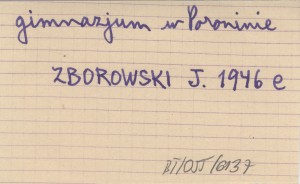 gimnazjum w Poroninie
ZBOROWSKI J. 1946 e
BT/OJJ/6137